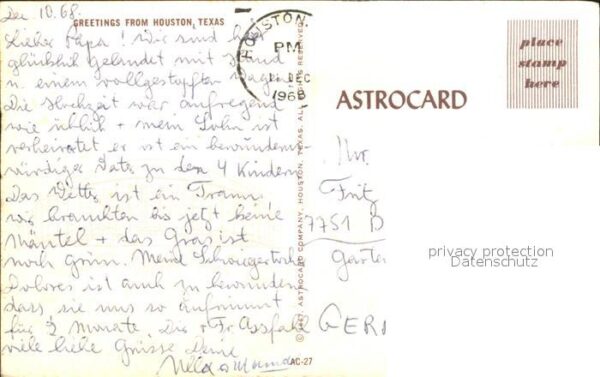 Dec 10.68.
GREETINGS FROM HOUSTON, TEXAS
Lieber Papa! Wir sind hier
glücklich gelandet mit Hund
u. einem vollgestopften Wagen
Die Hochzeit war aufregend
wie üblich + mein Sohn ist
verheiratet er ist ein bewunderns-
würdiger Vater zu den 4 Kindern
Das Wetter ist ein Traum,
wir brauchten bis jetzt keine
Mäntel + das Gras ist
noch grün. Meine Schwiegertochter
Dolores ist auch zu bewundern
dass sie uns so aufnimmt
für 2 Monate. Dir + Fr.
viele liebe Grüsse Deine
HOUSTON,
PM
11 DEC
1968
©1967 ASTROCARD COMPANY, HOUSTON, TEXAS. ALL RIGHTS RESERVED
ASTROCARD
place
stamp
here
Fritz
7751 D
Garte
GER
AC-27
privacy protection
Datenschutz